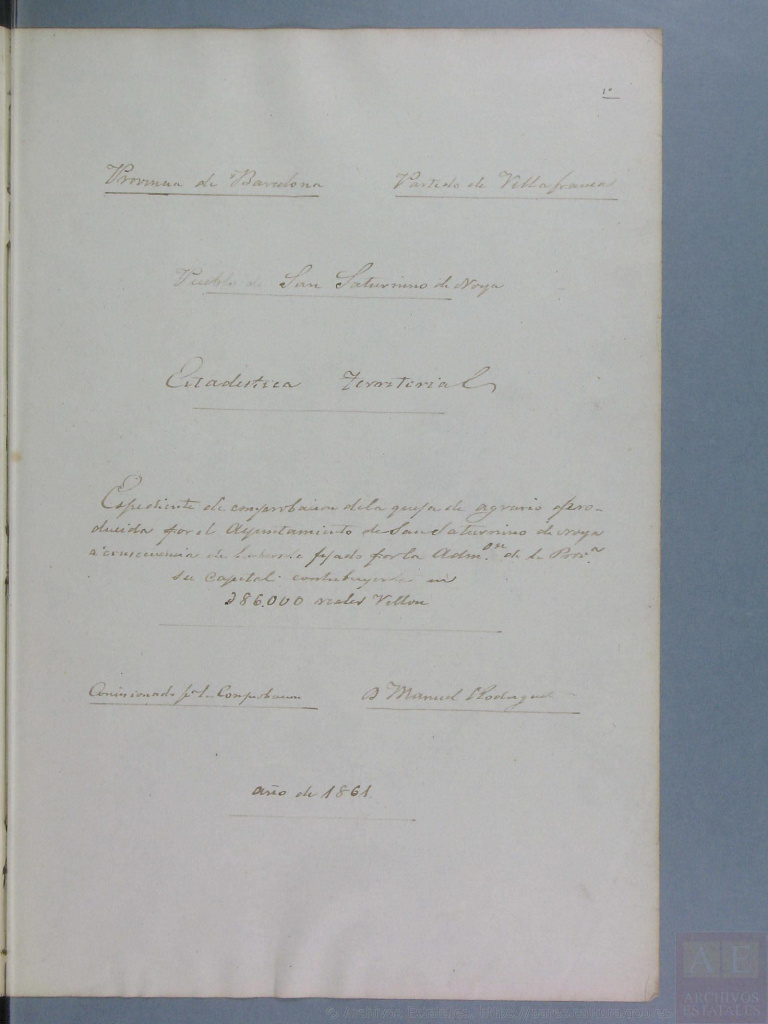 1º
Provincia de Barcelona Partido de Villafranca
Pueblo de San Saturnino de Noya
Estadistica Territorial
Espediente de comprobacion de la queja de agravio pro-
ducida por el Ayuntamiento de San Saturnino de Noya
a consecuencia de haberse fijado por la Adm.on de la Prov.a
su capital contribuyente en
386.000 reales Vellon
Comisionado p.r la Comprobacion D Manuel Rodriguez
año de 1861.
AE
ARCHIVOS
ESTATALES